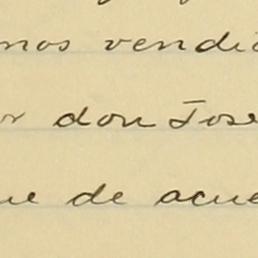 mos vendi
or don Jose
ue de acue